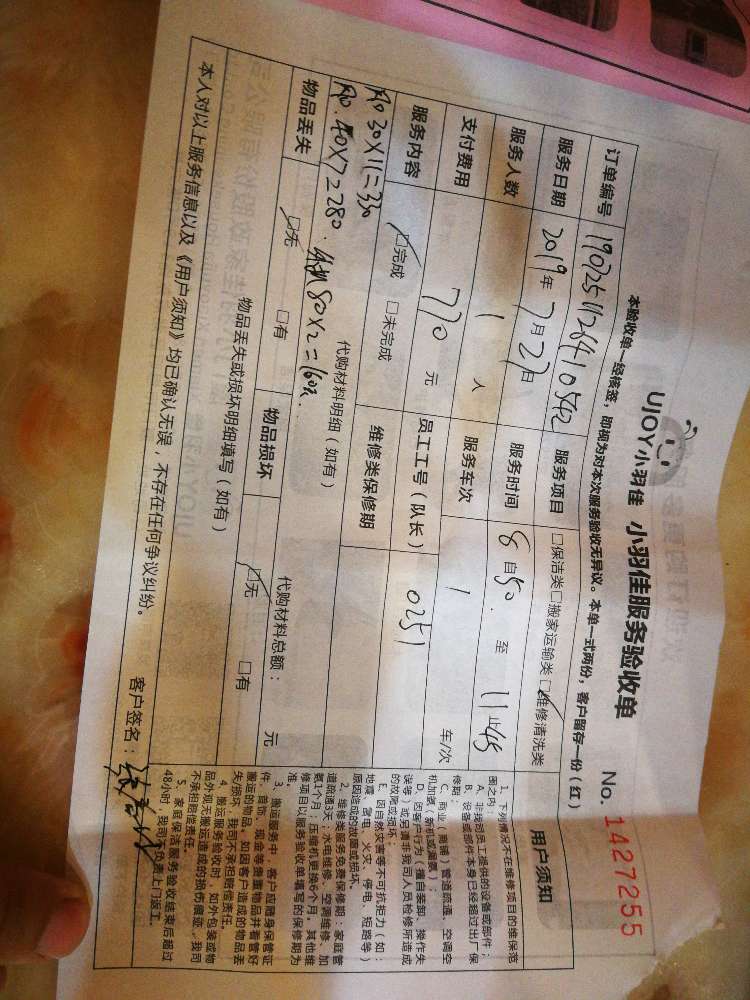 UJOY小羽佳 小羽佳服务验收单
No. 1427255
本验收单一经核签，即视为对本次服务验收无异议。本单一式两份，客户留存一份（红）
订单编号 服务项目 □保洁类□搬家运输类☑维修清洗类
服务日期 2019年7月27日 服务时间 8自50 至 11止45
服务人数 1 人 服务车次 1 车/次
支付费用 770 元 员工工号（队长） 0251
服务内容 ☑完成 □未完成 维修类保修期
30X11=330 代购材料明细（如有） 代购材料总额： 元
40X7=280. 80X2=160
物品丢失 ☑无 □有 物品损坏 ☑无 □有
物品丢失或损坏明细填写（如有）
本人对以上服务信息以及《用户须知》均已确认无误，不存在任何争议纠纷。
客户签名：
用户须知
1、下列情况不在维修项目的维保范
围之内：
A、非我司员工提供的设备或部件；
B、设备或部件本身已经超过出厂保
修期；
C、商业（商铺）管道疏通、空调空
机加氨、新机或漏氨）；
D、因客户行为（擅自装卸、操作失
误等）或另请非我司人员检修所造成
的故障或损坏；
E、因自然灾害等不可抗拒力（如：
地震、雷电、火灾、停电、短路等）
原因造成的故障或损坏。
2、维修类服务免费保修期：家庭管
道疏通3天；水电维修、空调维修、加
氨1个月；压缩机更换6个月，其他维
修项目以服务验收单填写的保修期为
准。
3、搬运服务中，客户应随身保管证
件、首饰、现金等贵重物品并看管好
搬运的物品。如因客户造成的物品丢
失/损坏，我司不承担赔偿责任。
4、搬运服务验收时，如外包装或物
品外观无搬运造成的损伤痕迹，我司
不承担赔偿责任。
5、家庭保洁服务验收结束后超过
48小时，我司不负责上门返工。